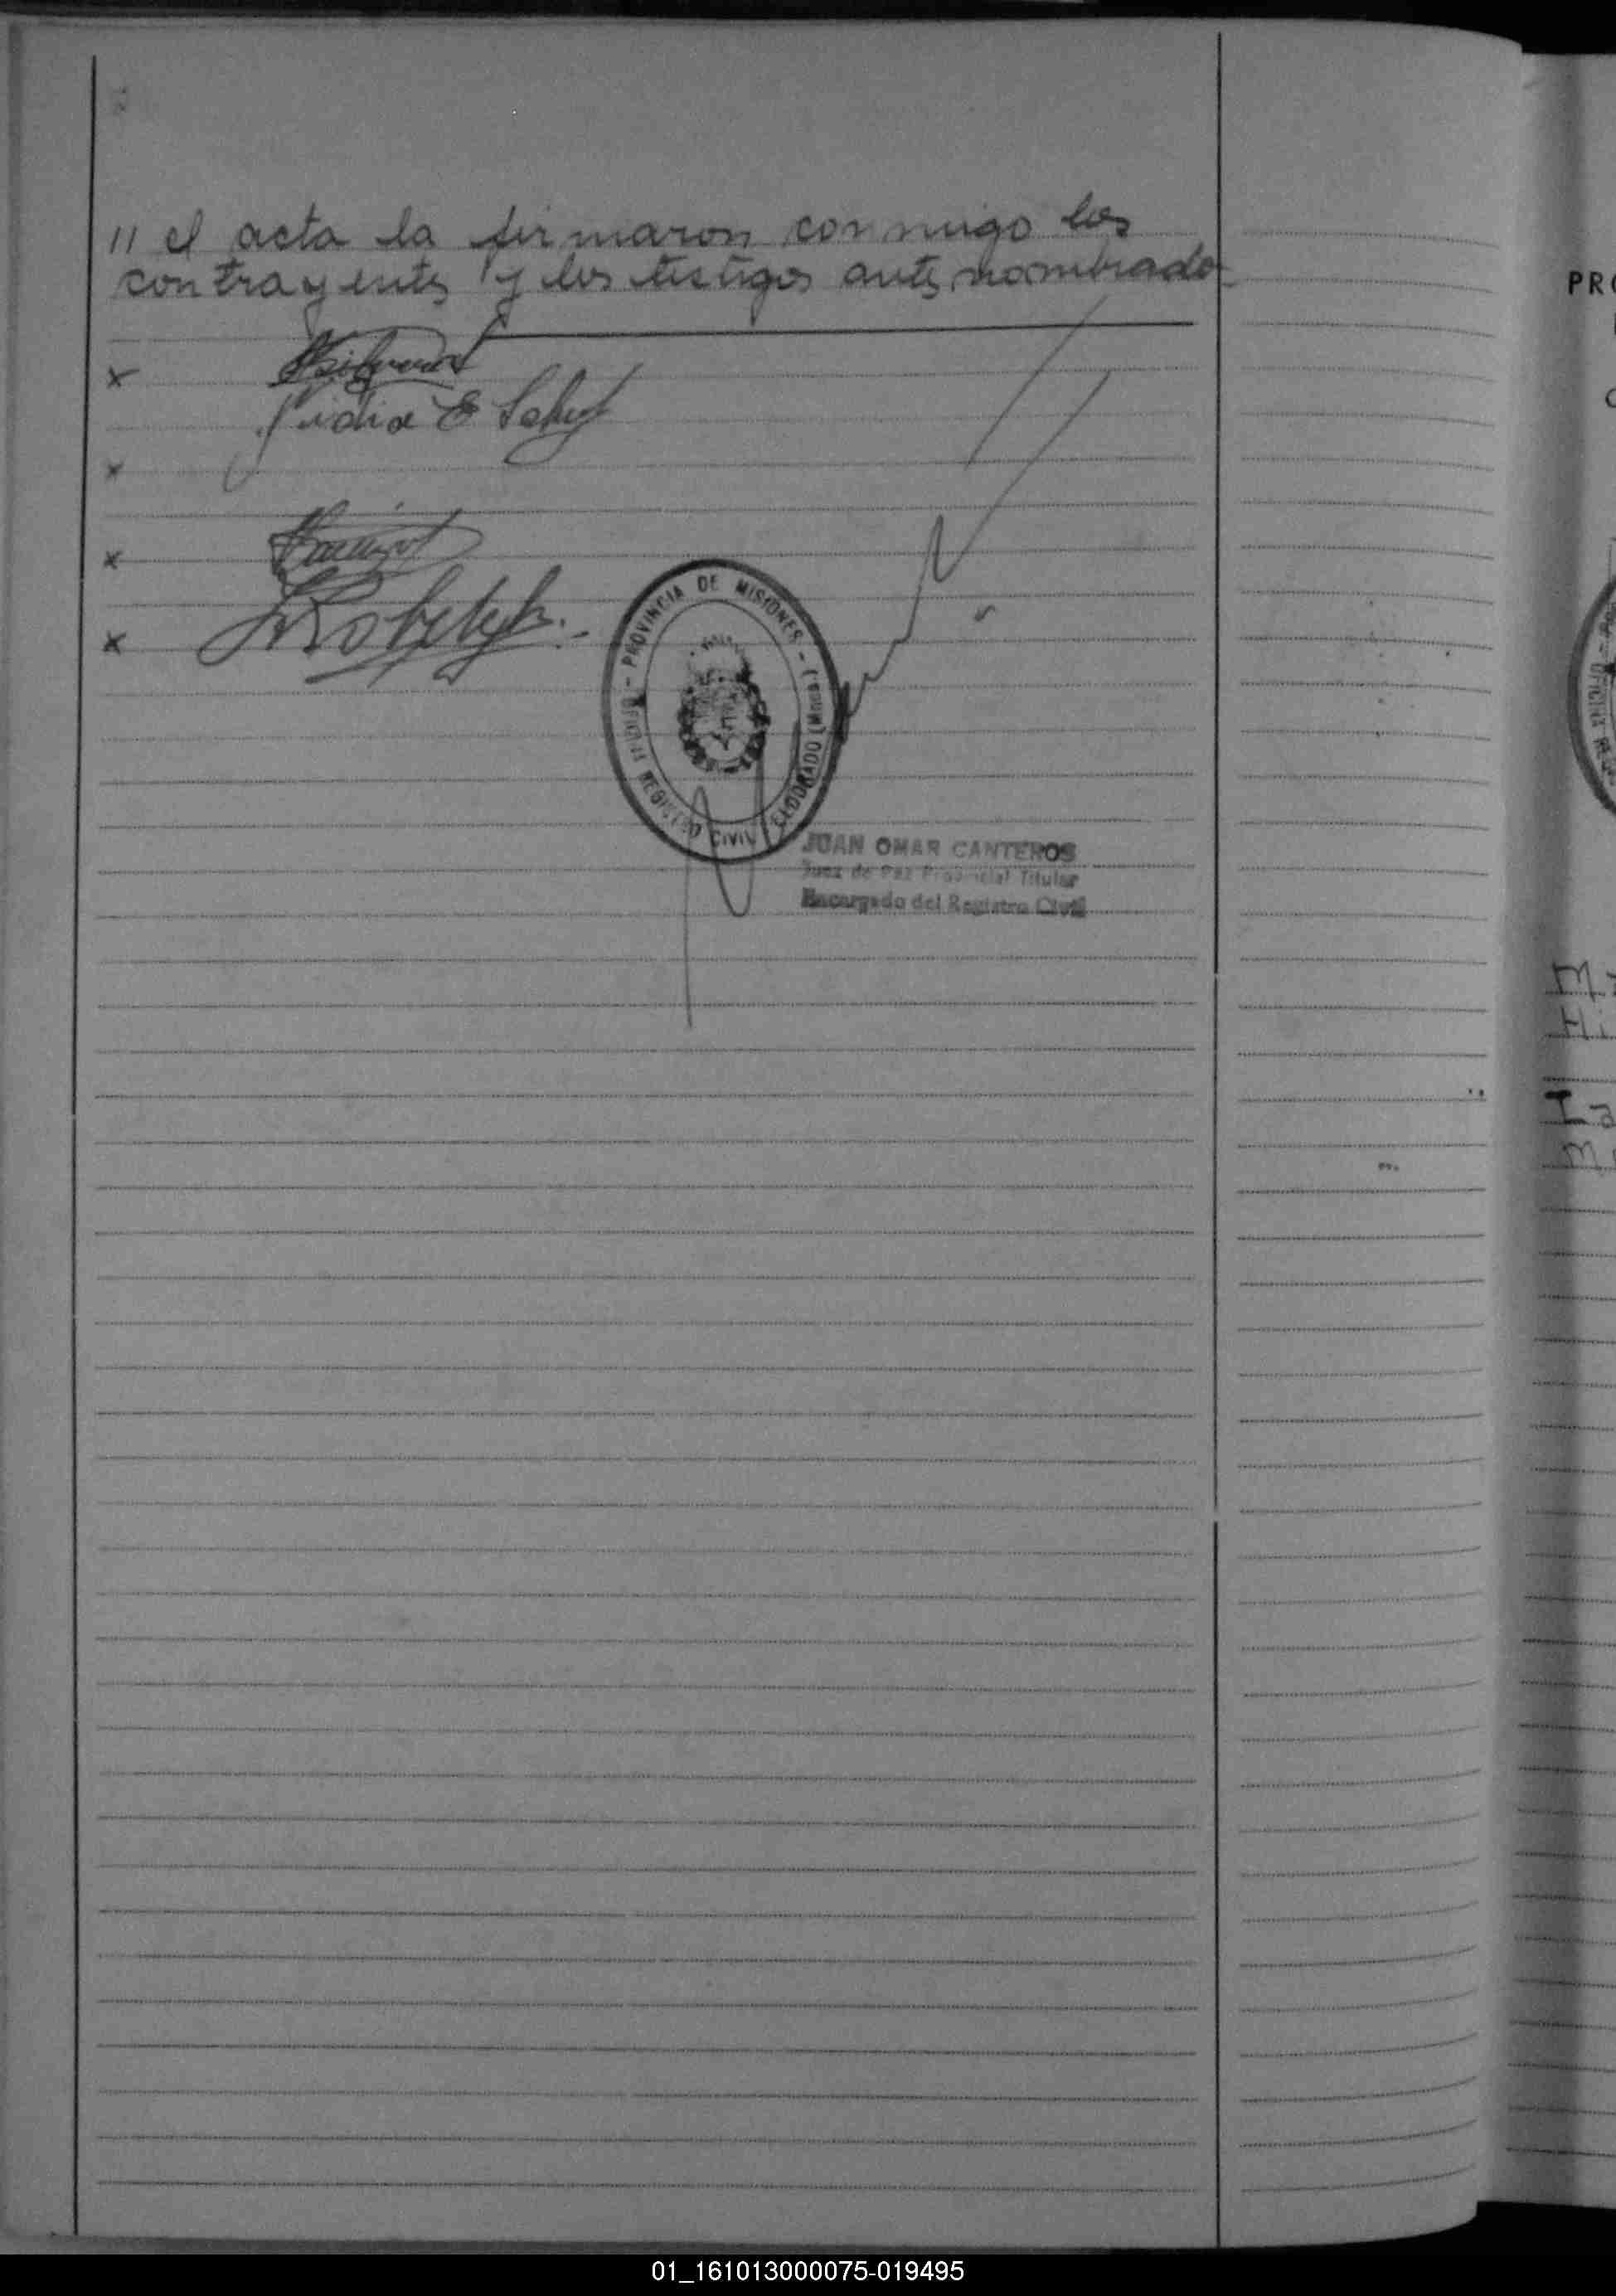 11 el acta la firmaron conmigo los
contrayentes y los testigos antes nombrado
x
Lidia E
x
x
x
- PROVINCIA DE MISIONES - ELDORADO (Misiones)
OFICINA REGISTRO CIVIL
JUAN OMAR CANTEROS
Juez de Paz Provincial Titular
Encargado del Registro Civil
PR
OFICINA RE
M
Hi
I
M
01_161013000075-019495